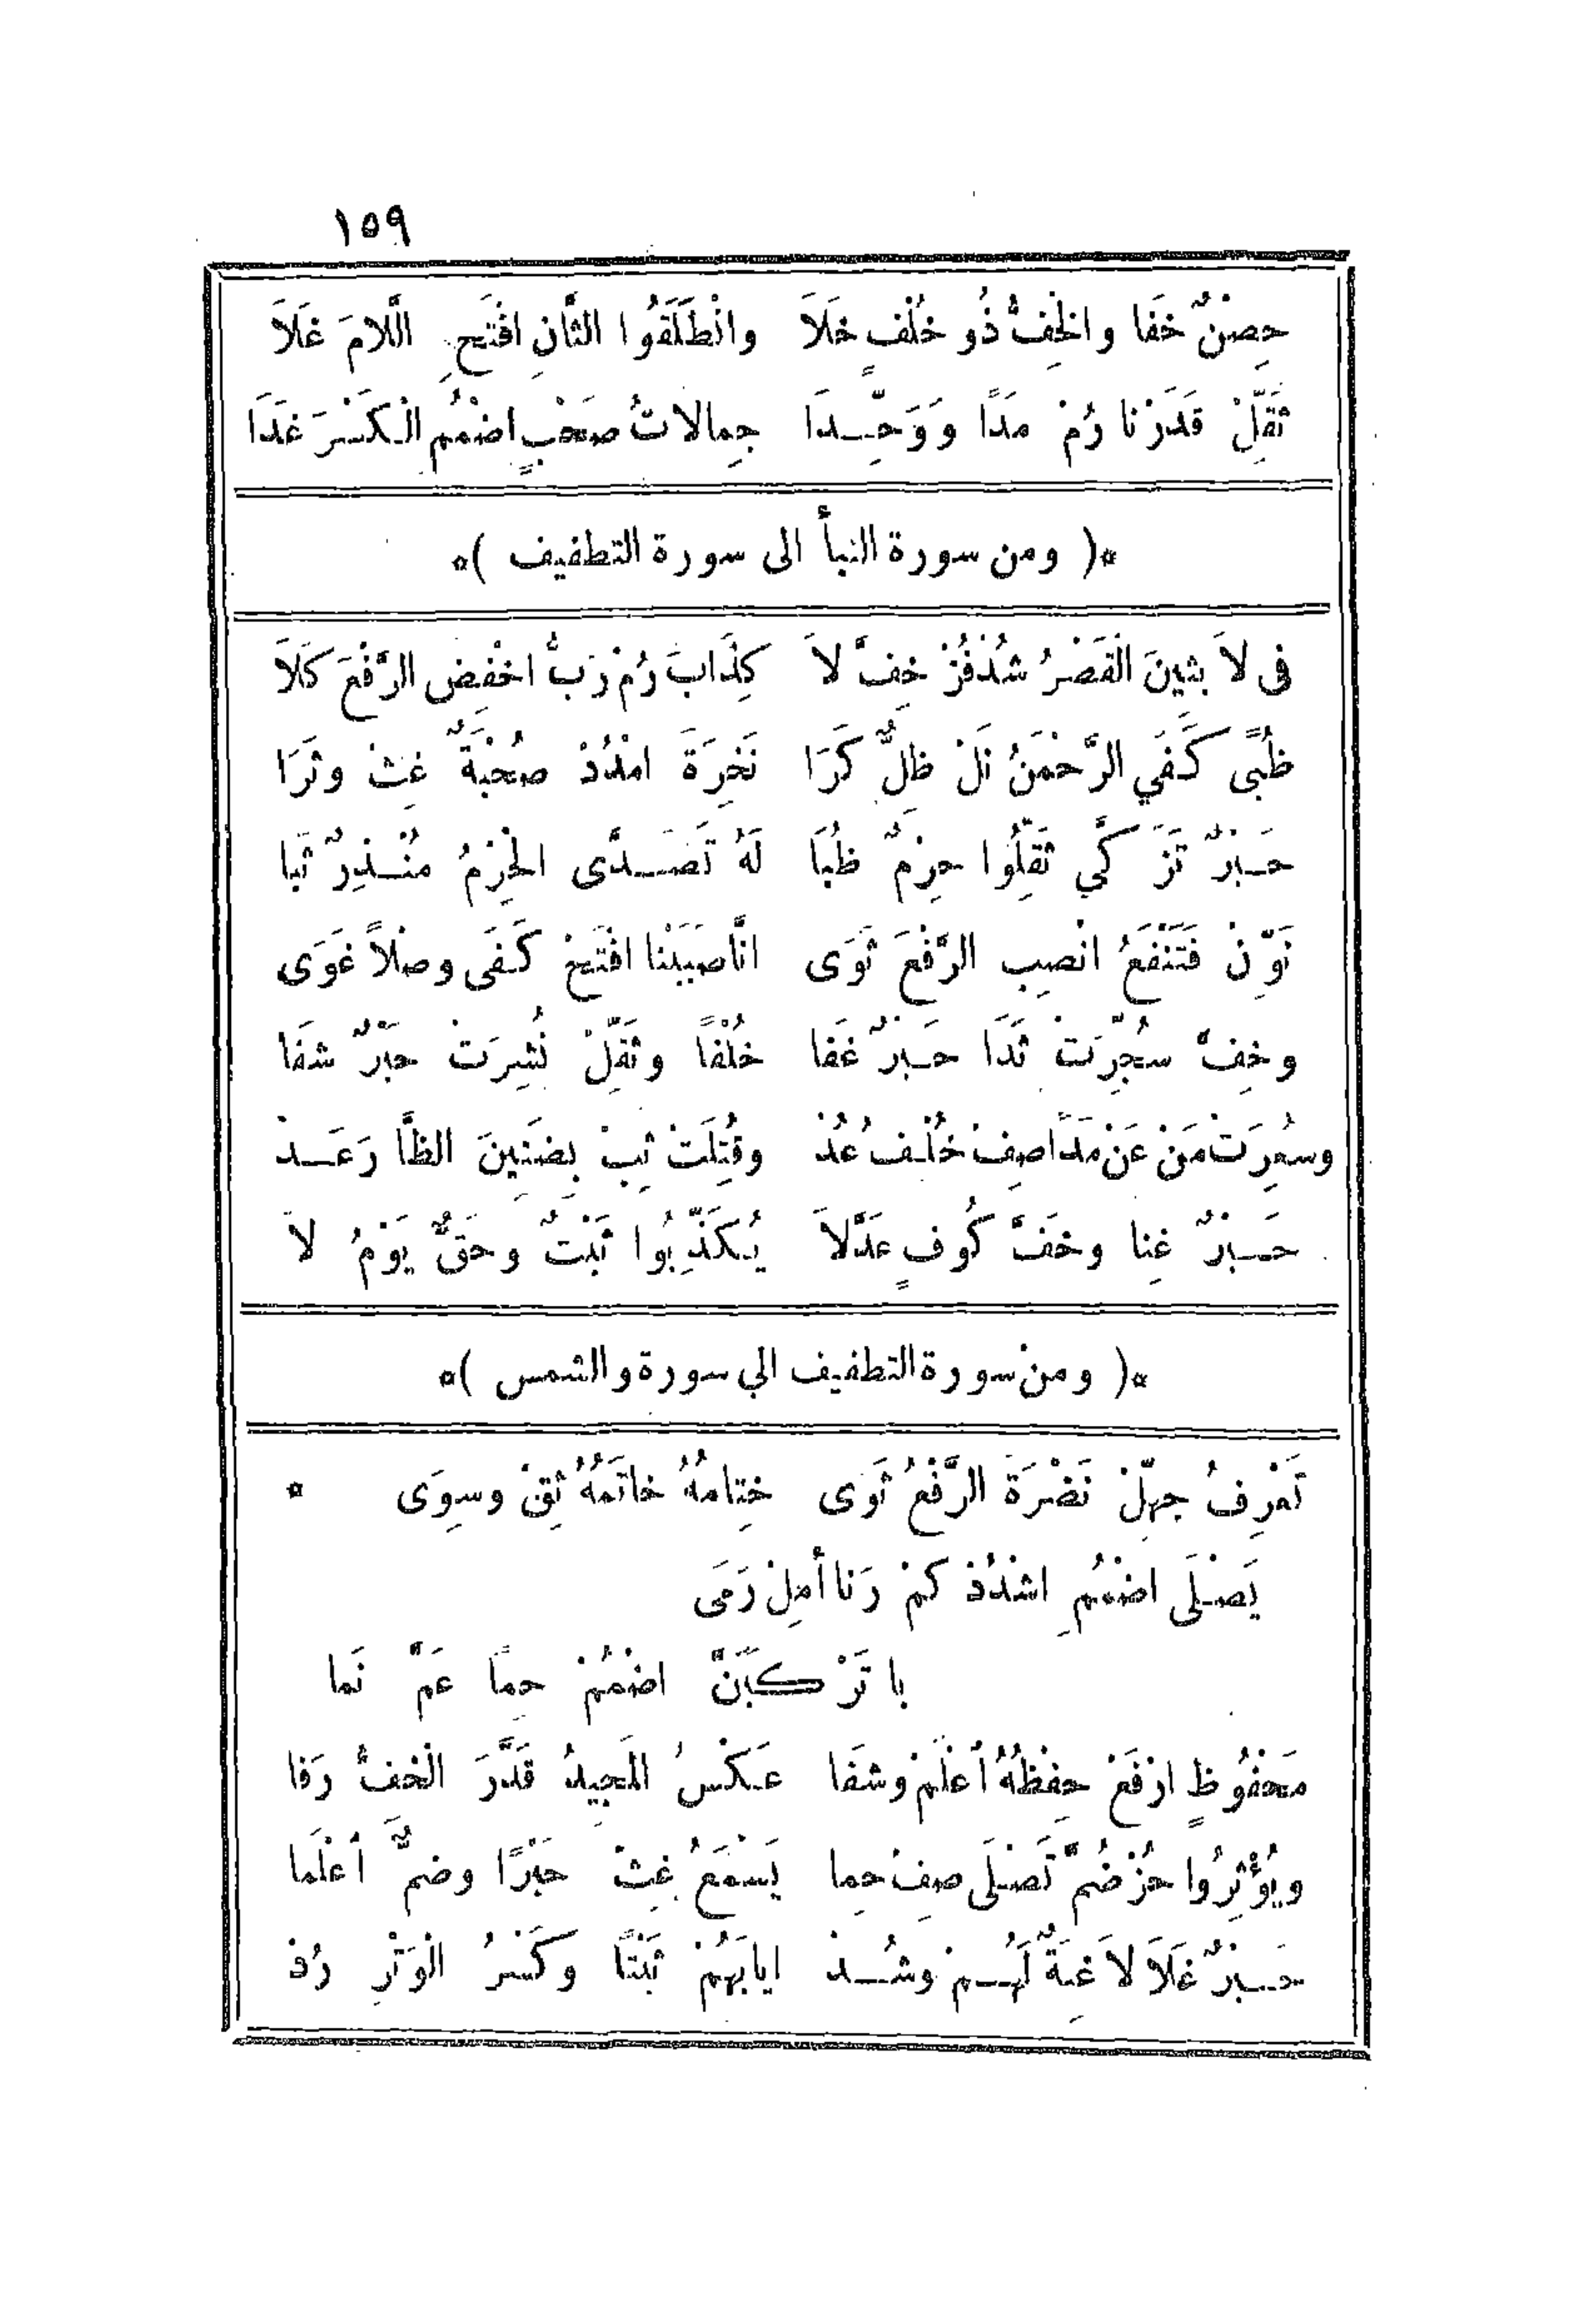 ١٥٩
حِصْنٌ خَفَا والْخِفُّ ذُو خُلْفٍ خَلَاَ وانْطَلَقُوا الثَّانِ افْتَحِ اللَّامَ غَلَاَ
ثَقِّلْ قَدَرْنا رُمْ مَدًا وَوَحِّدَا جِمالاتُ صَحْبٍ اضْمُمِ الْكَسْرَ غَدَا
*( ومن سورة النبأ الى سورة التطفيف )*
فى لاَ بِثِينَ الْقَصْرُ شُدْفُزْ خِفَّ لاَ كِذَّابَ رُمْ رَبُّ اخْفِضِ الرَّفْعَ كَلَاَ
ظُبًى كَفَي الرَّحْمَنُ نَلْ ظِلٌّ كَرَا نَخِرَةَ امْدُدْ صُحْبَةٌ غِثْ وتَرَا
حَبْرٌ تَزَكَّي ثَقِّلُوا حِرْمٌ ظُبَا لَهُ تَصَدَّى الْحِرْمُ مُنْذِرٌ ثَبا
نَوِّنْ فَتَنْفَعُ انْصِبِ الرَّفْعَ نَوَى انَّاصَبَبْنا افْتَحْ كَفَى وصْلاً غَوَى
وخِفُّ سُجِّرَتْ شَذَا حَبْرٌ غَفَا خُلْفًا وثَقِّلْ نُشِرَتْ حَبْرٌ شَفَا
وسُعِرَتْ مَنْ عَنْ مَدًا صِفْ خُلْفُ عُدْ وقُتِلَتْ ثِبْ بِضَنِينَ الظَّا رَعَدْ
حَبْرٌ غِنا وخَفَّ كُوفٍ عَدَّلَاَ يُكَذِّبُوا ثَبْتٌ وحَقٌّ يَوْمُ لاَ
*( ومن سورة التطفيف الي سورة والشمس )*
تَعْرِفُ جهِّلْ نَضْرَةَ الرَّفْعُ ثَوَى خِتامُهُ خاتَمُهُ ثِقْ وسِوَى *
يَصْلَى اضْمُمِ اشْدُدْ كَمْ رَنا أهلِ رَمَى
با تَرْكَبَنَّ اضْمُمْ حِمًا عَمَّ نَما
مَحْفُوظٍ ارْفَعْ حِفْظُهُ أعْلَمْ وشَفَا عَكْسُ المَجِيدُ قَدَّرَ الْخِفُّ رَفا
ويُؤْثِرُوا حُزْ ضُمَّ تَصْلَى صِفْ حِما يَسْمَعُ غِثْ حَبْرًا وضمٌّ أعْلَما
حَبْرٌ غَلَاَ لاَ غيَةٌ لَهُمْ وشُدْ ايابَهُمْ ثَبْتًا وكَسْرُ الْوَتْرِ رُدْ